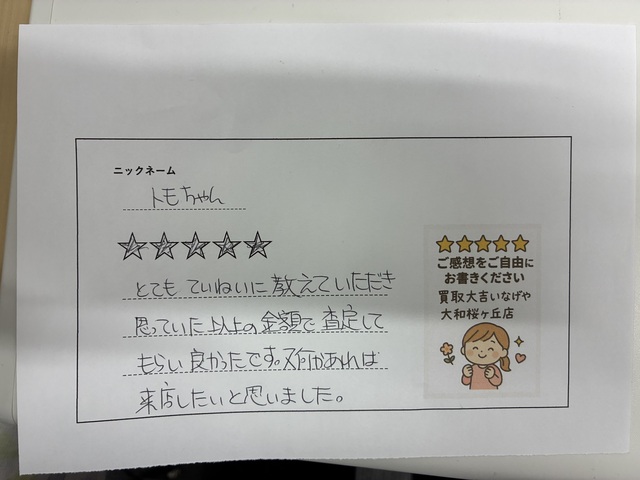 ニックネーム
トモちゃん
とても ていねいに 教えていただき
思っていた以上の金額で査定して
もらい良かったです。又何かあれば
来店したいと思いました。
ご感想をご自由に
お書きください
買取大吉いなげや
大和桜ヶ丘店